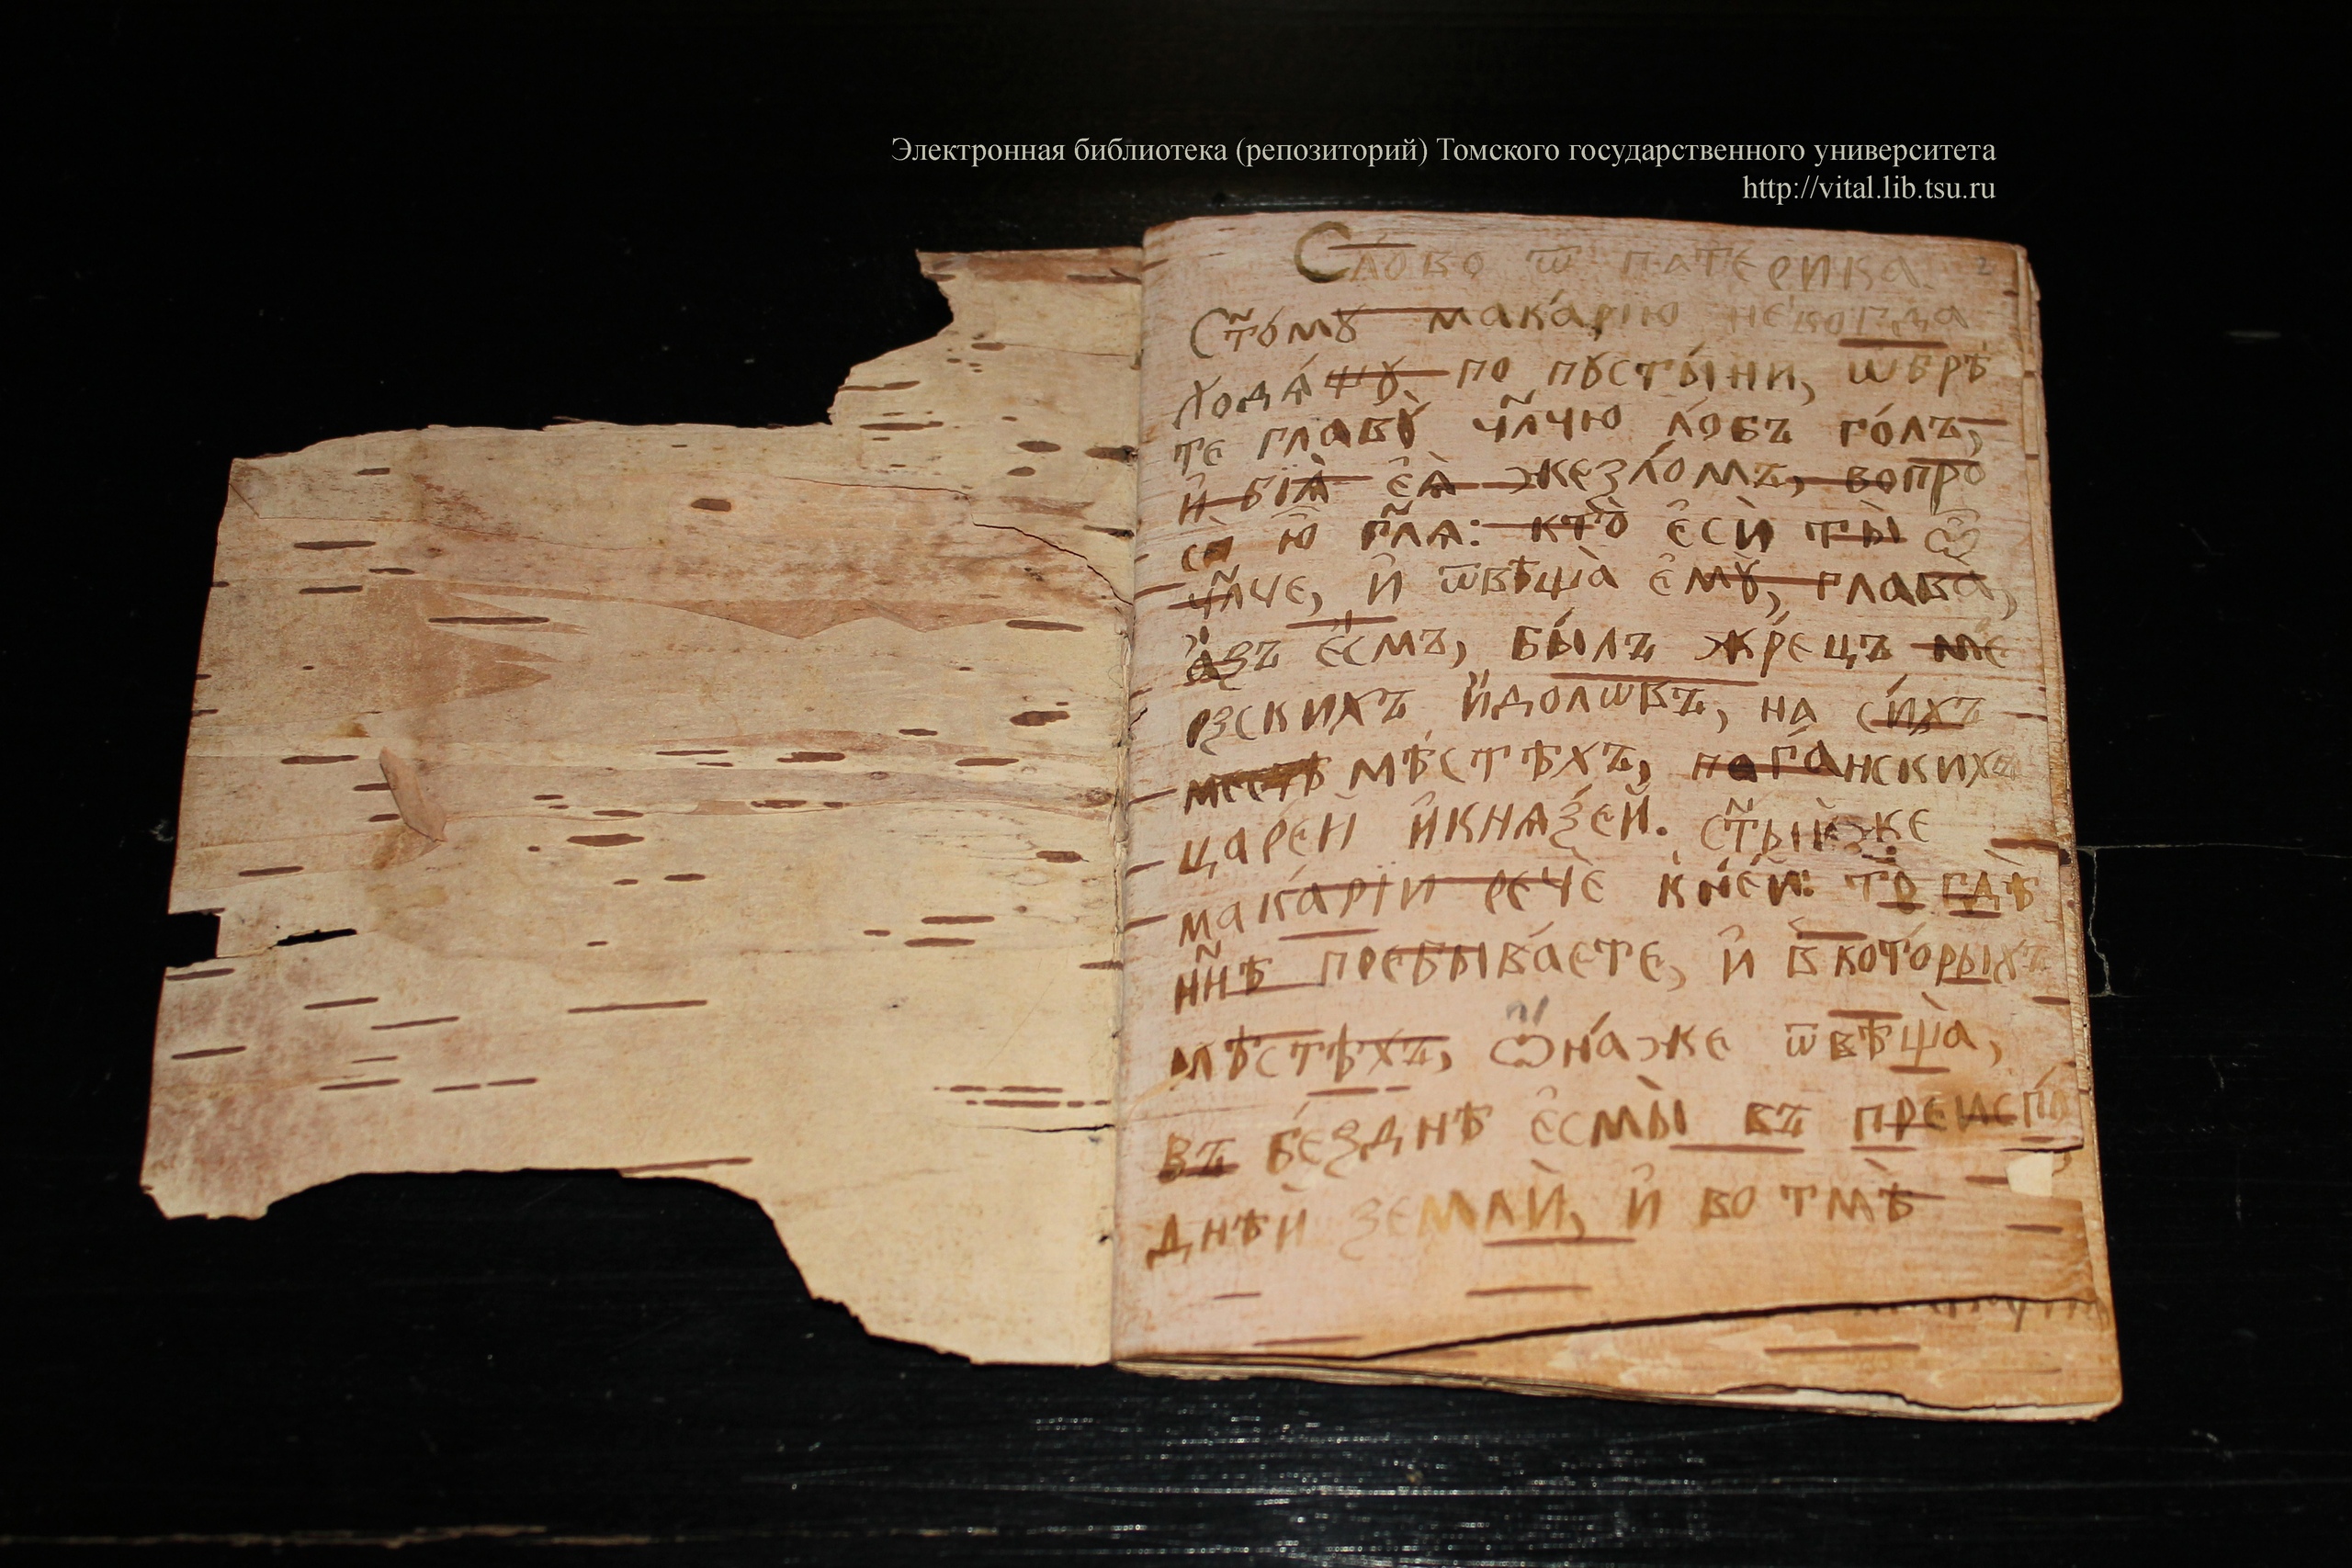 Электронная библиотека (репозиторий) Томского государственного университета
http://vital.lib.tsu.ru
Сло́во ѿ патерика. 2
Ст҃о́мꙋ мака́рїю не́когда
ходѧ́щꙋ по пꙋсты́ни, ѡбрѣ́
те главꙋ̀ чл҃чю ло́бъ го́лъ,
и҆ бїѧ̀ е҆ѧ̀ жезло́мъ, вопро
сѝ ю҆̀ гл҃ѧ: кто̀ е҆сѝ ты̀ ѽ
чл҃че, и҆ ѿвѣща̀ е҆мꙋ̀, глава̀,
а҆́зъ е҆́смъ, бы́лъ жре́цъ ме
рзскихъ и҆́долѡвъ, на си́хъ
мѣстѣхъ, пога́нскихъ
царе́й и҆кнѧзе́й. ст҃ы́йже
мака́рїи речѐ кне́й: то̀ гдѣ̀
нн҃ѣ пребыва́ете, и҆ вкото́рыхъ
мѣ́стѣхъ, ѽна́же ѿвѣща̀,
въ бе́зднѣ е҆смы̀ въ преиспо́
днѣй землѝ, и҆ во тмѣ̀